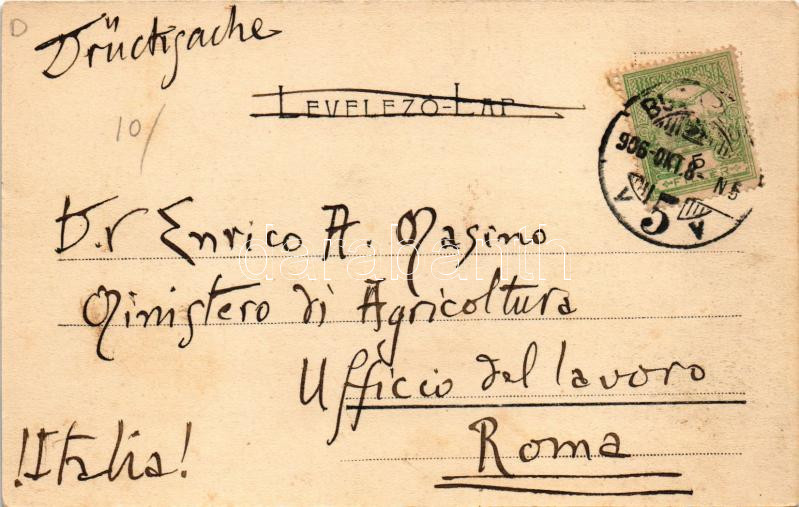 D
Drücksache
10/
LEVELEZŐ-LAP
MAGYAR KIR. POSTA
5
906-OKT.8-
N5
5
D.r Enrico A. Masino
Ministero di Agricoltura
Ufficio del lavoro
Roma
!Italia!
darabanth